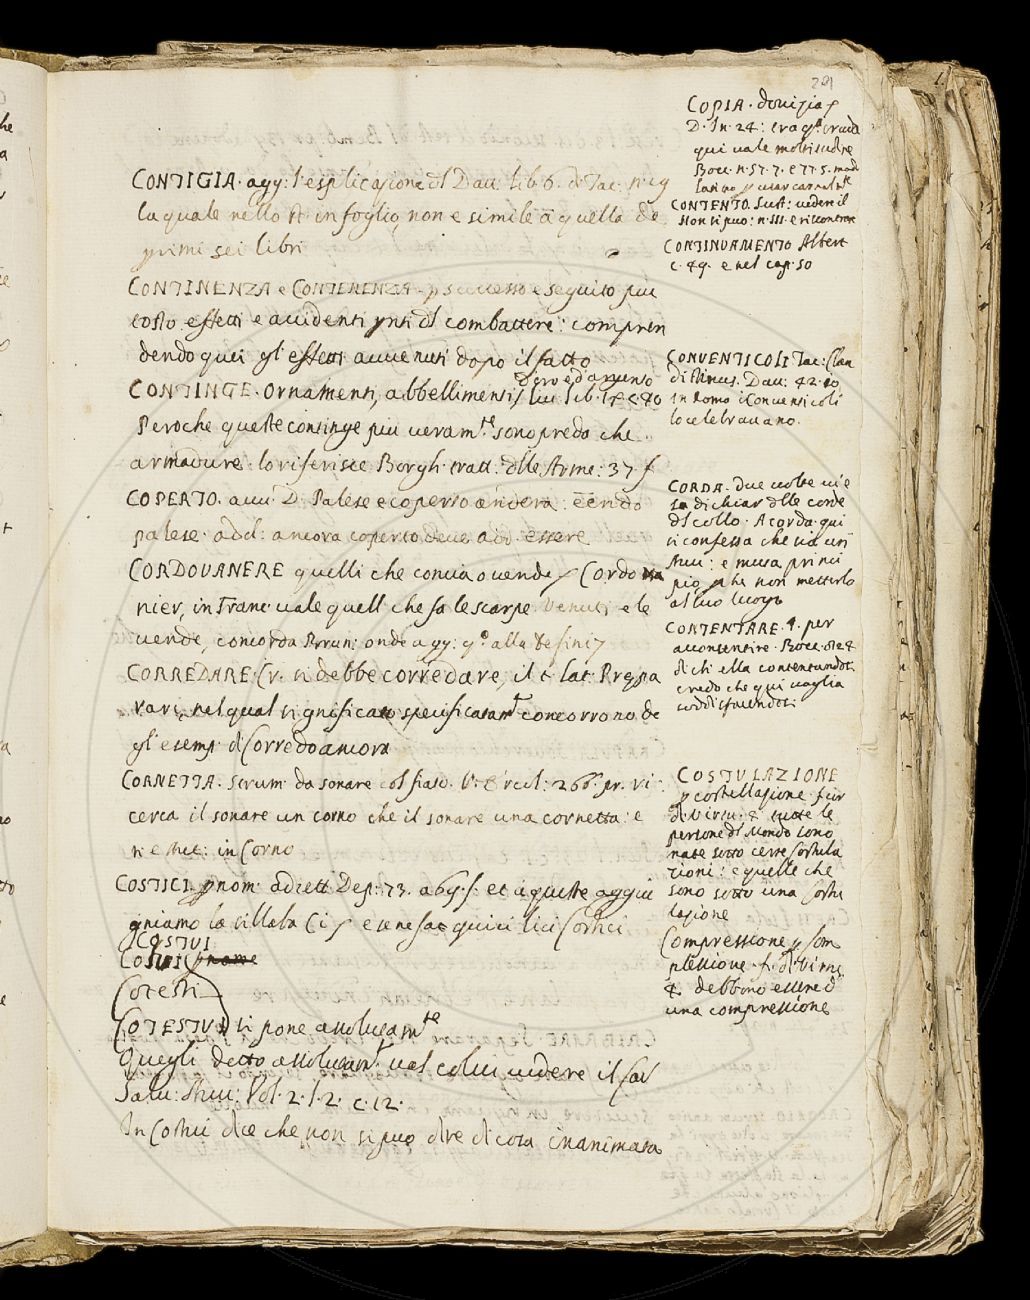 291
CONTIGIA. agg: l'esplicazione dl Dav: lib. 6. d Tac.
la quale nello st: in foglio, non e simile a quella de
primi sei libri
CONTINENZA e CONTERENZA. p successo e seguito piu
tosto effetti e accidenti dl combattere: compren
dendo quei gl'effetti avvenuti dopo il fatto
D'oro e d'argento
CONTINGE. Ornamenti, abbellimenti
Peroche queste continge piu veramte sono preda che
armadure. lo riferisce Borgh. tratt: dlle Arme: 37
COPERTO. avv: D. Palese e coperto andera:
palese. add: ancora coperto deve add. essere
CORDOVANERE quelli che concia o vende Cordova
nier, in Franc. vale quell che fa le scarpe. Venuti e le
vende, concorda onde agg: alla defini
CORREDARE. Cr. si debbe corredare, il lat: Prepa
rari, nel qual significato specificatamte concorrono de
gl'esemp. di Corredo ancora
CORNETTA. Strum: da sonare col fiato. 266. pr. ri
cerca il sonare un corno che il sonare una cornetta: e
n e met: in Corno
COSTICI. pnom: adiett Dep: 73. a 69 f. et a queste aggiu
gniamo la sillaba Ci quici lici Costici
COSTUI
COSTICI pnome
Cotesti
COTESTUI si pone assolutamte
Quegli detto assolutamt val colui vedere il sal
Salv: Avv: Vol. 2. l. 2. c. 12.
In Costui dice che non si puo dire di cosa inanimata
COPIA. dovizia
D. In. 24: tra
qui vale moltitudine
Bocc. n. 57. 7. e 77. 5.
CONTENTO. Sust: vedi il
Non si puo: n. III. e riscontrar
CONTINUAMENTO Albert
c. 49. e nel cap. 50
CONVENTICOLI. Tac:
Dav: 42.
In Romo i Conventicoli
lo celebravano.
CORDA. Due volte vi e
la dichiar dlle corde
dl collo. A corda. qui
si confessa che sia un
Avv: e messa princi
pio, che non metterlo
al suo luogo
CONTENTARE. 4. per
acconsentire. Bocc.
di ch'ella contentandosi
credo che qui vaglia
soddisfacendosi
COSTULAZIONE
p costellazione. fior
di Virtu. 4. tutte le
persone dl Mondo sono
nate sotto certe Costula
zioni: e quelle che
sono sotto una Costu
lazione
Compressione p Com
plessione. f. di Virtu
4. debbono essere d
una compressione